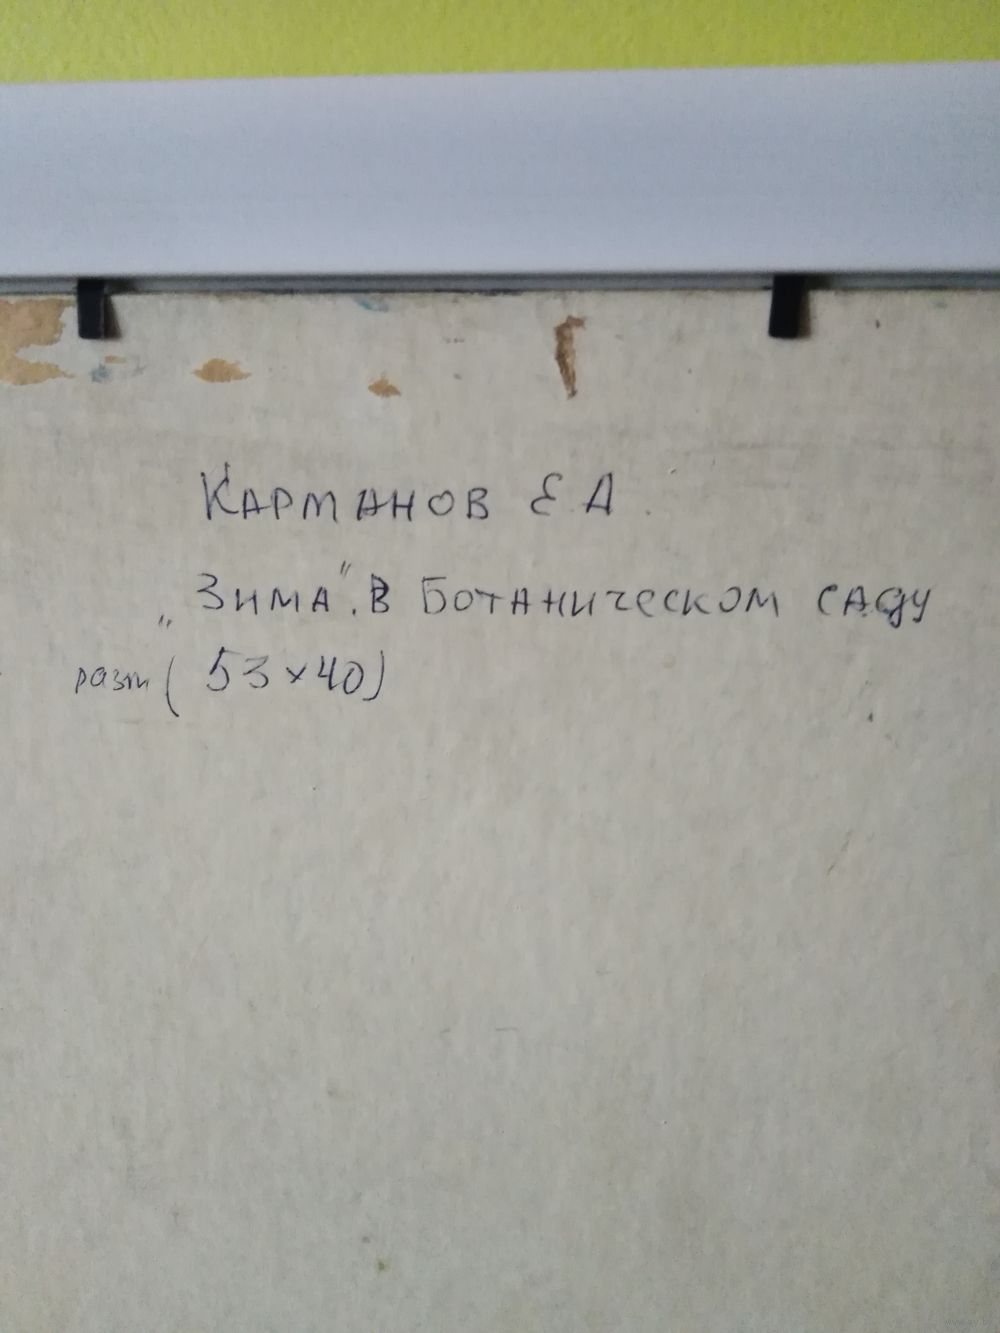 КАРМАНОВ Е А.
„ЗИМА". В БОТАНИЧЕСКОМ САДУ
разм (53×40)